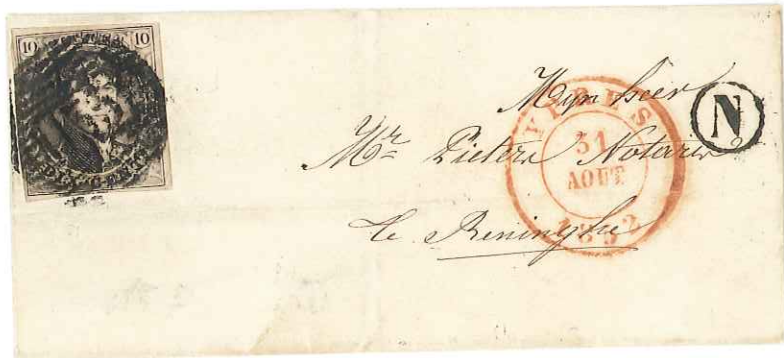 10 10
Mynheer
Mr Pieters Notaris
te Reninghe
YPRES
31
AOUT
1852
N